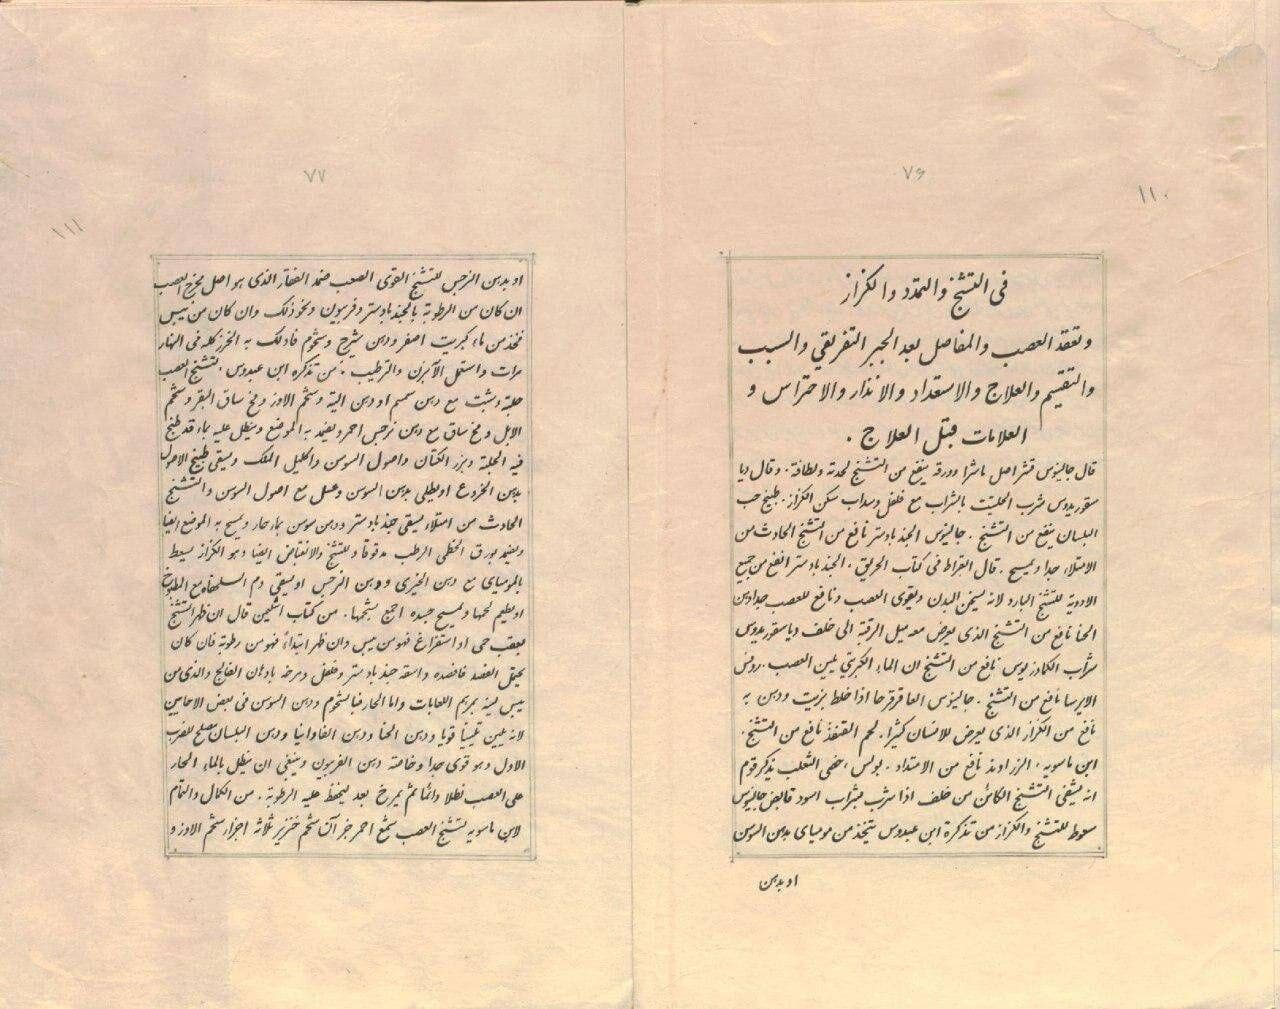 ٧٦
١١٠
فى التشنج والتمدد والكزاز
وتعقد العصب والمفاصل بعد الجبر التفريقي والسبب
والتقيم والعلاج والاستعداد والانذار والاحتراس و
العلامات قبل العلاج .
قال جالينوس قشر اصل باشرا وورقه ينفع من التشنج لحدته ولطافته . وقال ديا
سقوريدوس شرب الحلتيت بالشراب مع فلفل وسداب سكن الكزاز . طبيخ حب
البلسان ينفع من التشنج . جالينوس الجندبادستر نافع من التشنج الحادث من
الامتلاء جدا وتمسح . قال ابقراط فى كتاب الحريق . الجندبادستر انفع من جميع
الادوية للتشنج البارد لانه يسخن البدن ويقوى العصب ونافع للعصب جدا دهن
الحنا نافع من التشنج الذى يعرض معه ميل الرقبة الى خلف دياسقوريدوس
شراب الكمادريوس نافع من التشنج ان الماء الكبريتي يلين العصب . روفس
الايرسا نافع من التشنج . جالينوس العاقرقرحا اذا خلط بزيت ودهن به
نافع من الكزاز الذى يعرض للانسان كثيرا . لحم القنفذ نافع من التشنج .
ابن ماسويه . الزراوند نافع من الامتداد . بولس ، خصى الثعلب يذكر قوم
انه يشفى التشنج الكائن من خلف اذا شرب بشراب اسود قابض جالينوس
سعوط للتشنج والكزاز من تذكرة ابن عبدوس يتخذ من موميای بدهن السوسن
او بدهن
٧٧
١١١
او بدهن النرجس للتشنج القوى الصعب ضمد الفقار الذى هو اصل مخرج العصب
ان كان من الرطوبة بالجندبادستر وفربيون ونحو ذلك وان كان من يبس
فخذ من ماء كبريت اصفر ودهن شيرج وشحوم فادلك به الخرز كله فى النهار
مرات واستعمل الآبزن والترطيب . من تذكره ابن عبدوس . لتشنج العصب
حلبة وشبت مع دهن سمسم او دهن الية وشحم الاوز ومخ ساق البقر وشحم
الابل ومخ ساق مع دهن نرجس احمر ويضمد به الموضع وينطل عليه بماء قد طبخ
فيه الحلبة وبزر الكتان واصول السوسن واكليل الملك ويسقى طبيخ الاصول
بدهن الخروع او يطلى بدهن السوسن وعسل مع اصول السوسن والتشنج
الحادث من امتلاء يسقى جندبادستر ودهن سوسن بماء حار ويمسح به الموضع ايضا
ويضمد بورق الخطمى الرطب مدقوقا وللتشنج والانقباض ايضا وهو الكزاز يسعط
بالموميای مع دهن الخيرى ودهن النرجس او يسقى دم السلحفاة مع الطبوخ
او يطعم لحمها ويمسح جسده اجمع بشحمها . من كتاب اشليمن قال ان ظهر التشنج
بعقب حمى او استفراغ فهو من يبس وان ظهر ابتداءً فهو من رطوبة فان كان
يحتمل الفصد فافصده واسقه جندبادستر وفلفل ومرخه بادهان الفالج والذى من
يبس لينه بمريم اللعابات واما الحار فبالشحوم ودهن السوسن فى بعض الاحايين
لانه يلين تليينا قويا ودهن الحنا ودهن الفاوانيا ودهن البلسان يصلح للضرب
الاول وهو قوى جدا وخاصة دهن الفربيون وينبغى ان ينطل بالماء الحار
على العصب نطلا دائما ثم يمرخ بعد ليحفظ عليه الرطوبة . من الكمال والتمام
لابن ماسويه لتشنج العصب شمع احمر جزآن شحم خنزير ثلاثة اجزاء شحم الاوز و